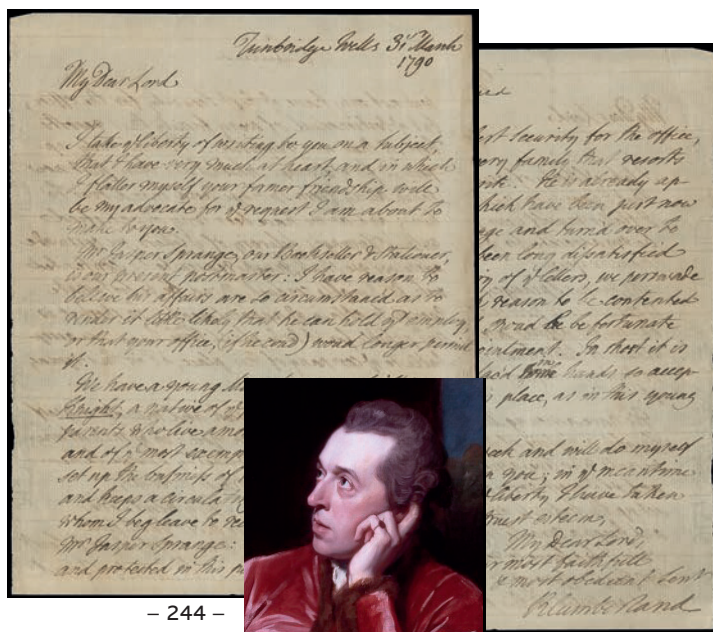 Tunbridge Wells 31st March
1790
My Dear Lord
I take ye liberty of writing to you on a subject,
that I have very much at heart, and in which
I flatter myself your former friendship will
be my advocate for ye request I am about to
make to you.
Mr Jasper Sprange, our Bookseller & Stationer,
is our present postmaster: I have reason to
believe his affairs are so circumstanced as to
render it little likely that he can hold yt employ,
or that your office, (if he cou'd) wou'd longer permit
it:
We have a young
Knight, a native of
parents who live
and of ye most
set up the business of
and keeps a
whom I beg leave to
Mr Jasper Sprange:
and protected in this
security for the office,
family that resorts
He is already ap-
which have been just now
and turn'd over to
been long dissatisfied
of ye letters, we persuade
reason to be contented
wou'd be fortunate
In short it is
hands so accep-
place, as in this young
and will do myself
you; in ye meantime
liberty I have taken
truest esteem,
My Dear Lord,
most faithfull
& most obedient Servt
Rd Cumberland
– 244 –